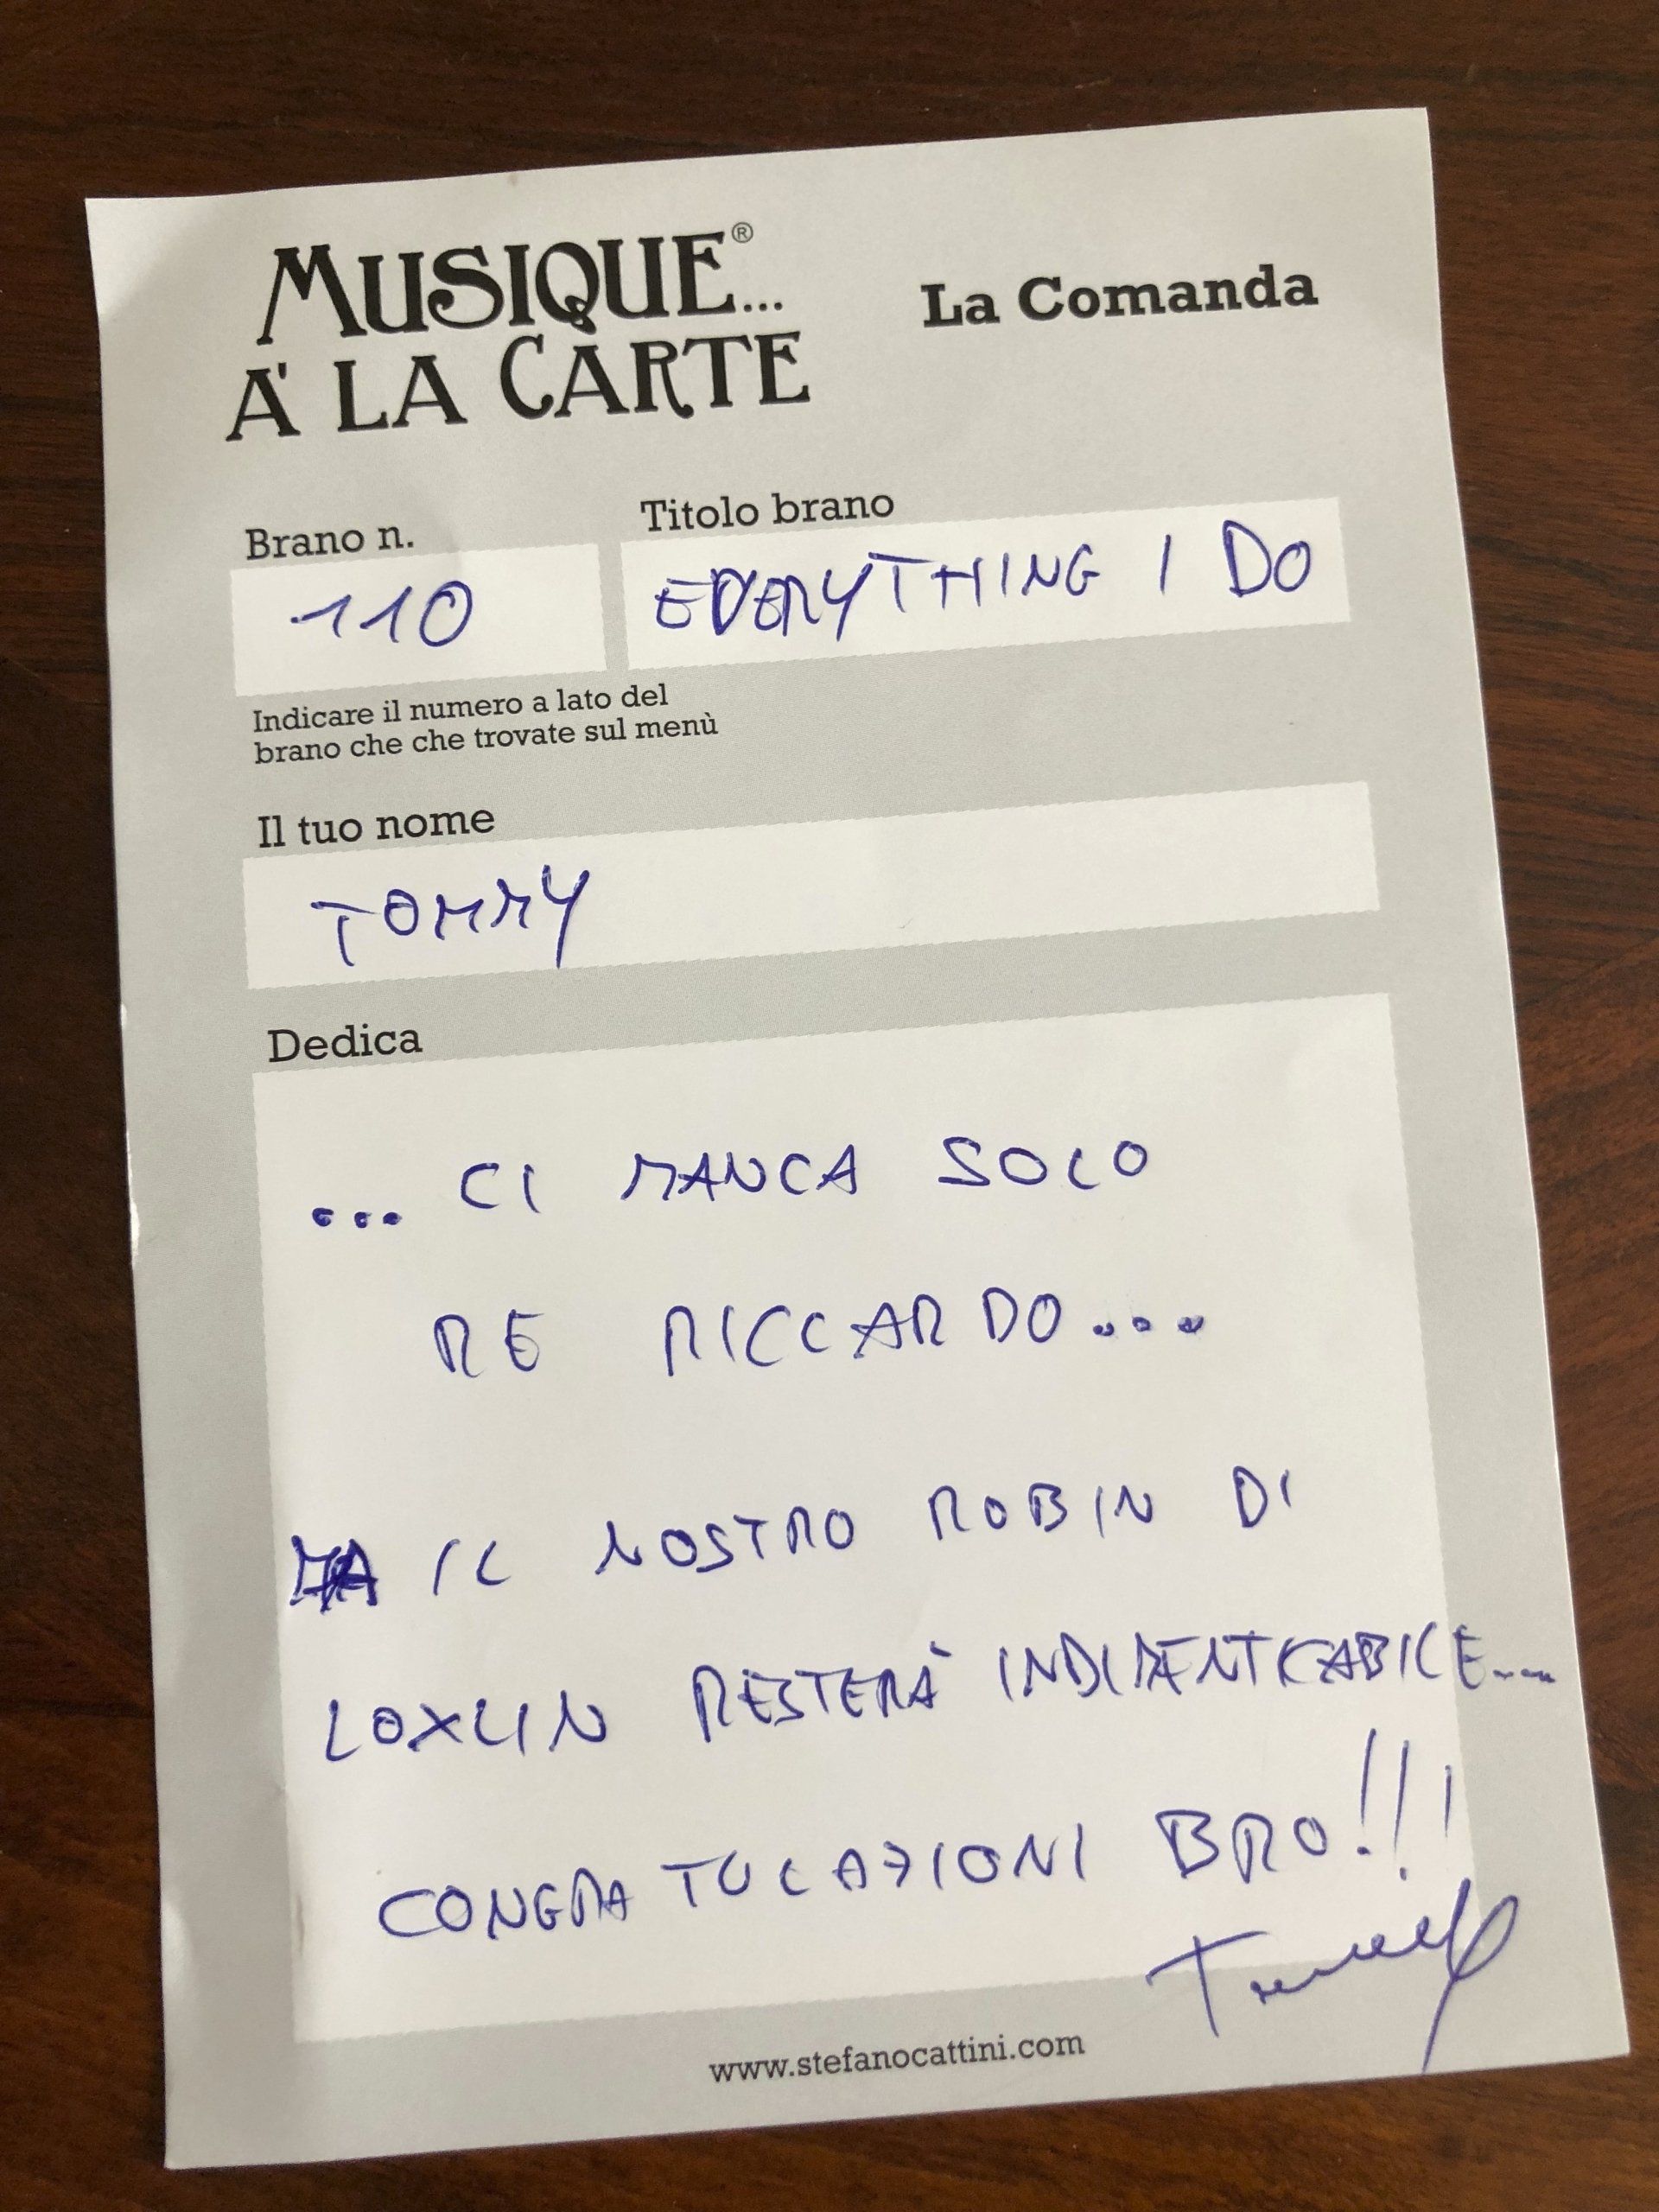 MUSIQUE...®
A' LA CARTE
La Comanda
Brano n.
Titolo brano
110
EVERYTHING I DO
Indicare il numero a lato del
brano che che trovate sul menù
Il tuo nome
TOMMY
Dedica
... CI MANCA SOLO
RE RICCARDO....
MA IL NOSTRO ROBIN DI
LOXLIN RESTERÀ INDIMENTICABILE....
CONGRATULAZIONI BRO!!!
Tommy
www.stefanocattini.com